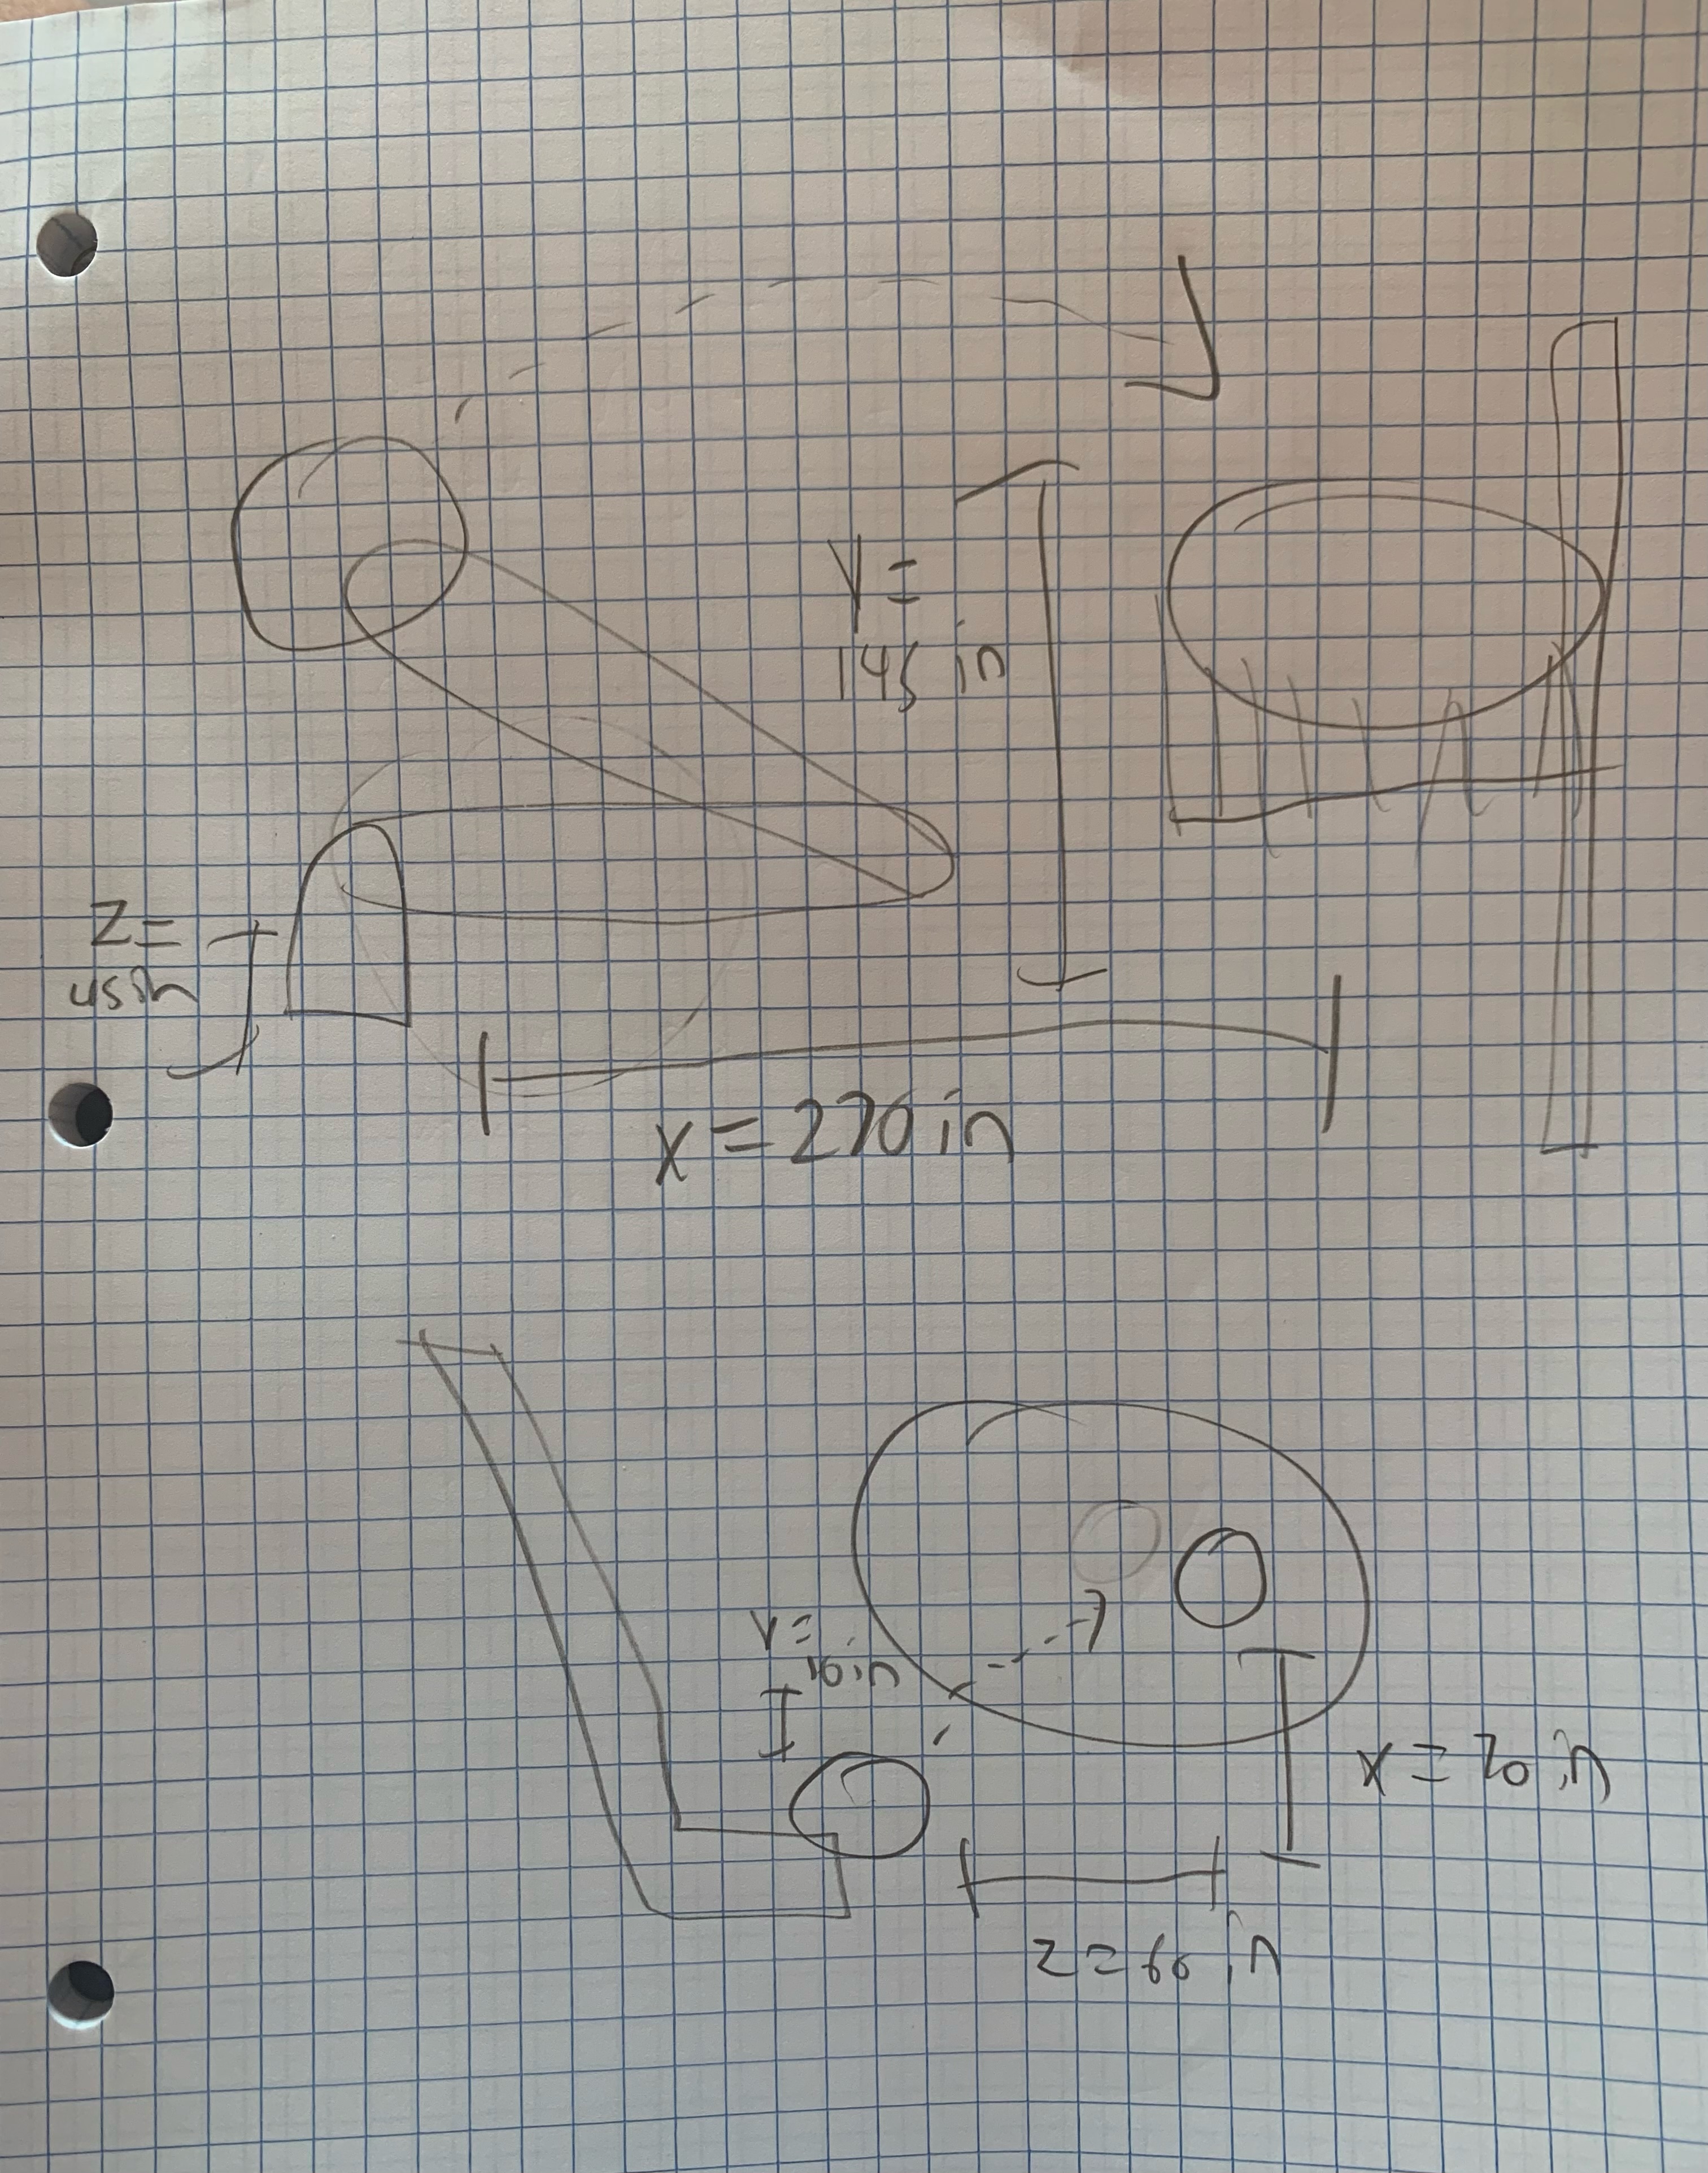 Y =
145 in
Z =
45 in
X = 270 in
Y =
10 in
X = 20 in
Z = 60 in